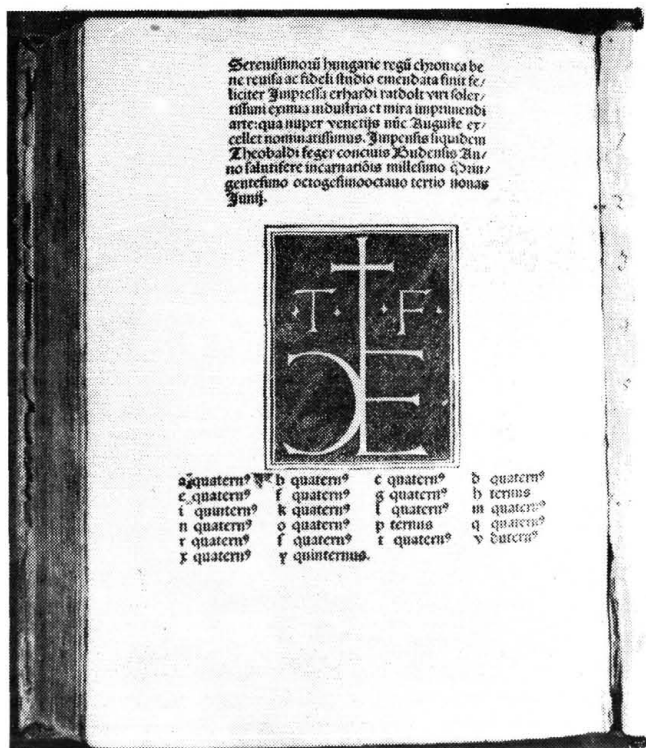 Serenissimorū hungarie regū chronica be
ne reuisa ac fideli studio emendata finit fe/
liciter Impressa erhardi ratdolt viri soler/
tissimi eximia industria et mira imprimendi
arte: qua nuper venetijs nūc Auguste ex/
cellet nominatissimus. Impensis siquidem
Theobaldi feger conciuis Budensis An/
no salutifere incarnatiōis millesimo q̄drin/
gentesimo octogesimooctauo tertio nonas
Junij.
T F
a quaternꝰ b quaternꝰ c quaternꝰ d quaternꝰ
e quaternꝰ f quaternꝰ g quaternꝰ h ternus
i quinternꝰ k quaternꝰ l quaternꝰ m quaternꝰ
n quaternꝰ o quaternꝰ p ternus q quaternꝰ
r quaternꝰ ſ quaternꝰ t quaternꝰ v duternꝰ
x quaternꝰ y quinternus.